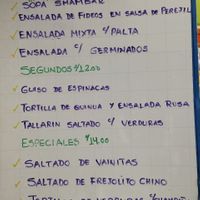 SOPA SHAMBAR
ENSALADA DE FIDEOS EN SALSA DE PEREJIL
ENSALADA MIXTA C/ PALTA
ENSALADA C/ GERMINADOS
SEGUNDOS S/12.00
GUISO DE ESPINACAS
TORTILLA DE QUINUA Y ENSALADA RUSA
TALLARIN SALTADO C/ VERDURAS
ESPECIALES S/14.00
SALTADO DE VAINITAS
SALTADO DE FREJOLITO CHINO
TORTILLA DE VERDURAS